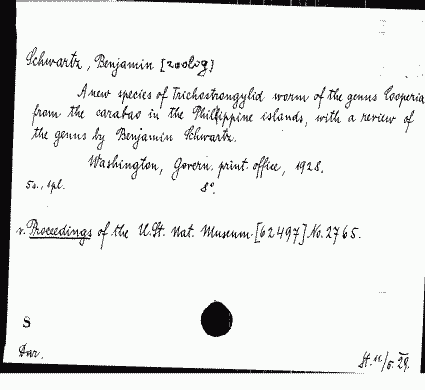 Schwartz, Benjamin [zoolog]
A new species of Trichostrongylid worm of the genus Cooperia
from the carabao in the Philippine islands, with a review of
the genus by Benjamin Schwartz.
Washington, Govern. print. office, 1928.
5 s., 1 pl. 8°.
v. Proceedings of the U. St. Nat. Museum. [62497] No. 2765.
S
Dar.